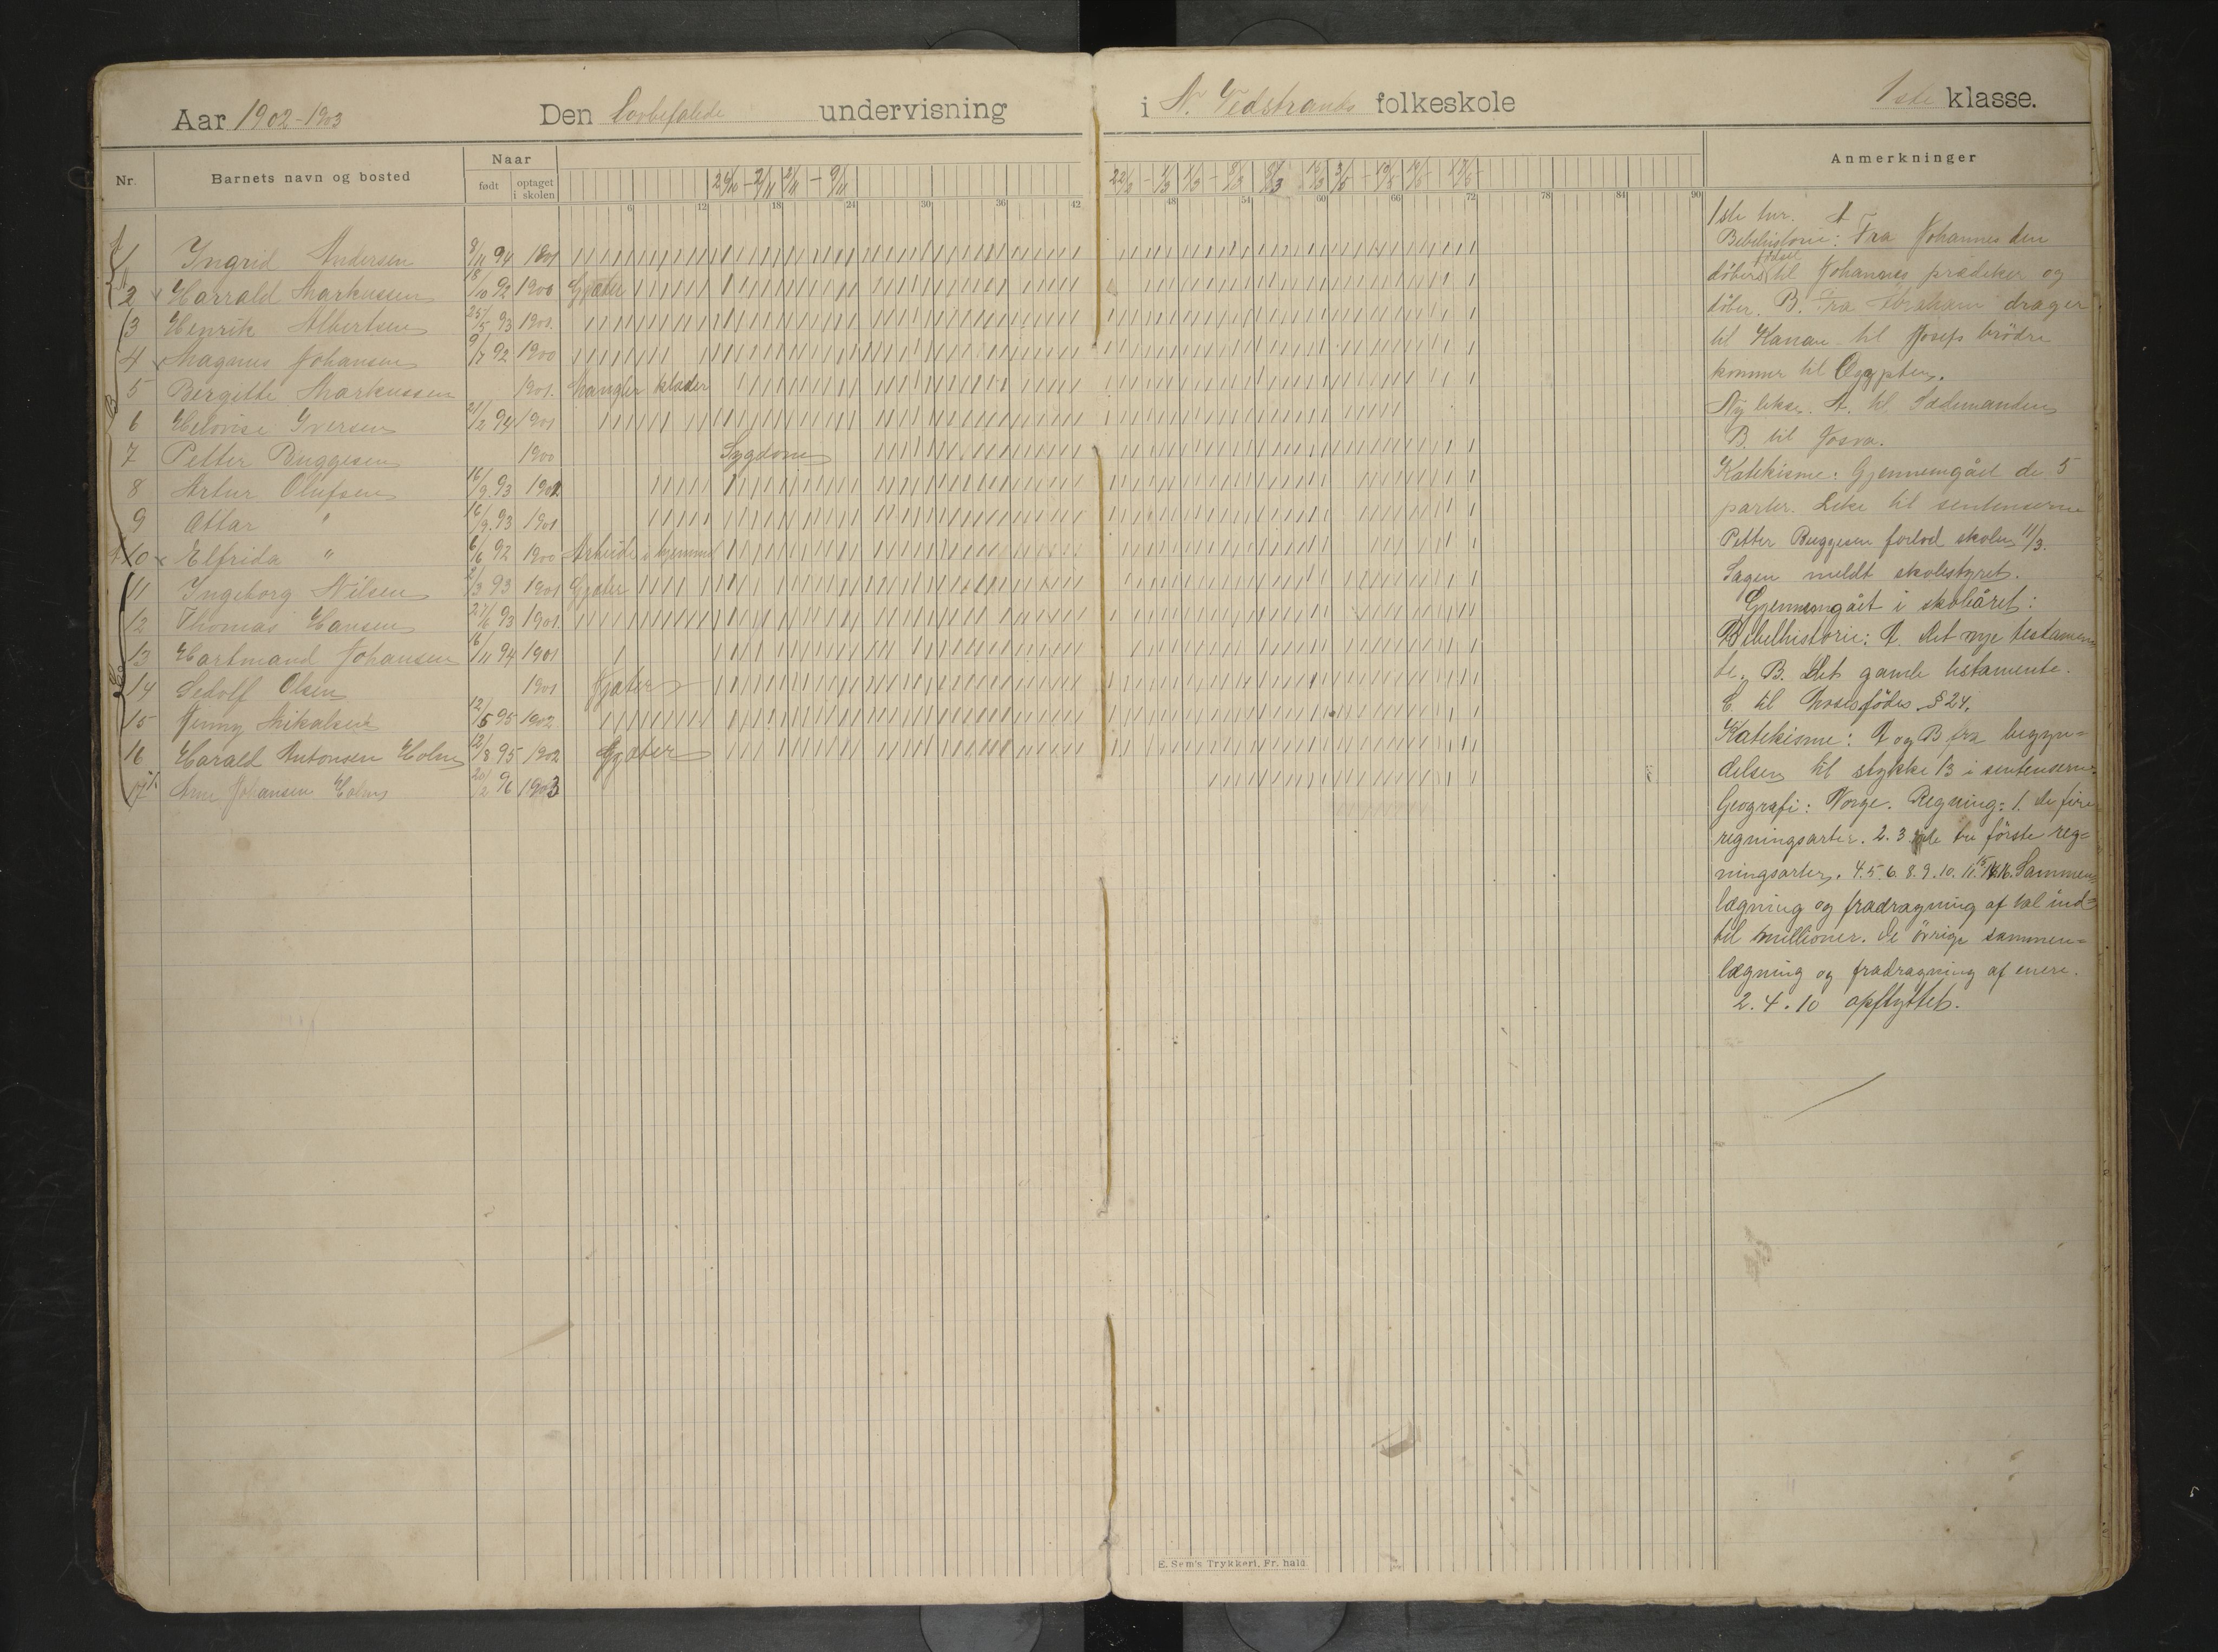 Aar 1902-1903 Den Lovbefalede undervisning i N. Vedstrands folkeskole 1ste klasse.
Nr. Barnets navn og bosted Naar født optaget i skolen Anmerkninger
26/10 - 2/11 2/11 - 9/11 22/2 - 1/3 1/3 - 8/3 8/3 15/3 3/5 - 10/5 10/5 - 17/5
6 12 18 24 30 36 42 48 54 60 66 72 78 84 90
1 Ingrid Andersen 8/11 94 1901
2 Harrald Markussen 18/10 92 1900 Gjæter
3 Henrik Albertsen 25/5 93 1901.
4 Magnus Johansen 9/7 92 1900
5 Bergitte Markussen 1901. Mangler klæder
6 Helovise Iversen 21/2 94 1901
7 Petter Buggesen 1900 Sygdom
8 Artur Olufsen 16/9. 93 1901
9 Ottar " 16/9. 93 1901
10 Elfrida " 6/6 92 1900 Arbeide i hjemmet
11 Ingeborg Nilsen 2/3 93 1901 Gjæter
12 Thomas Hansen 27/6 93 1901
13 Hartmand Johansen 16/11 94 1901
14 Sedolf Olsen 1901 Gjæter
15 Jenny Mikalsen 12/5 95 1902
16 Harald Antonsen Holm 12/8 95 1902 Gjæter
17 Arne Johansen Holm 20/2 96 1903
1ste tur. A
Bibelhistorie: Fra Johannes den
døbers fødsel til Johannes prædiker og
døber. B. Fra Abraham drager
til Kanan til Josefs brödre
kommer til Ægypten.
Ny lekse. A. til Sædemanden
B. til Josva.
Katekisme: Gjennemgået de 5
parter. Lekse til sentenserne
Petter Buggesen forlod skolen 11/3.
Sagen meldt skolestyret.
Gjennemgået i skoleåret:
Bibelhistorie: A. Det nye testamen
te. B. Det gamle testamente.
C. til Moses födes § 24.
Katekisme: A og B fra begyn=
delsen til stykke 13 i sentenserne.
Geografi: Norge. Regning: 1. de fire
regningsarter. 2. 3 de tre förste reg=
ningsarter. 4. 5. 6. 8. 9. 10. 11. Sammen=
lægning og fradragning af tal ind=
til millioner. De övrige sammen=
lægning og fradragning af enere.
2. 4. 10 opflyttet.
E. Sem's Trykkeri, Fr. hald.